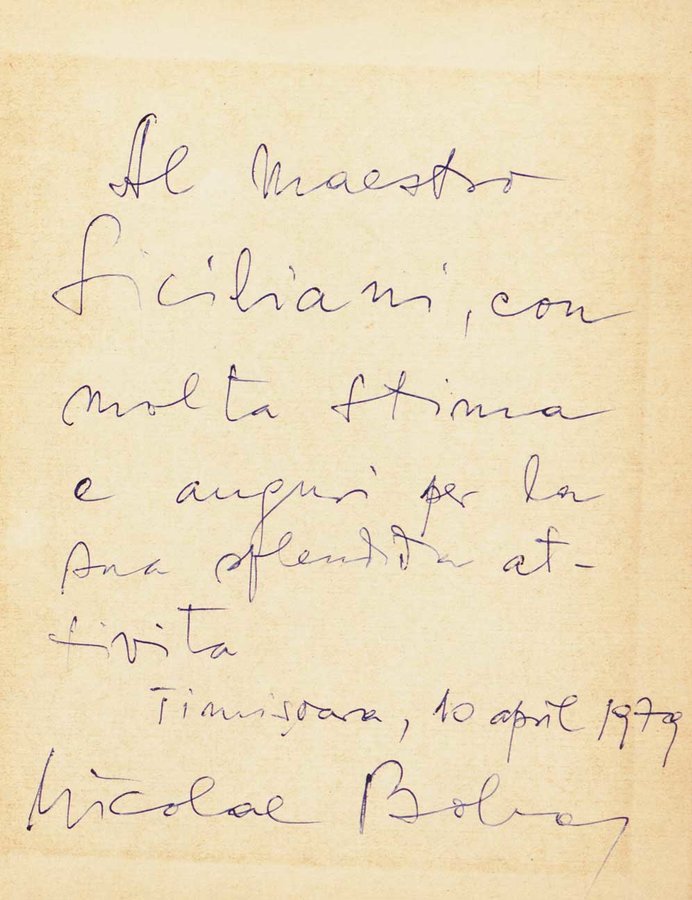 Al maestro
Siciliani, con
molta stima
e auguri per la
sua splendida at-
tività
Timișoara, 10 april 1979
Nicolae Boboc